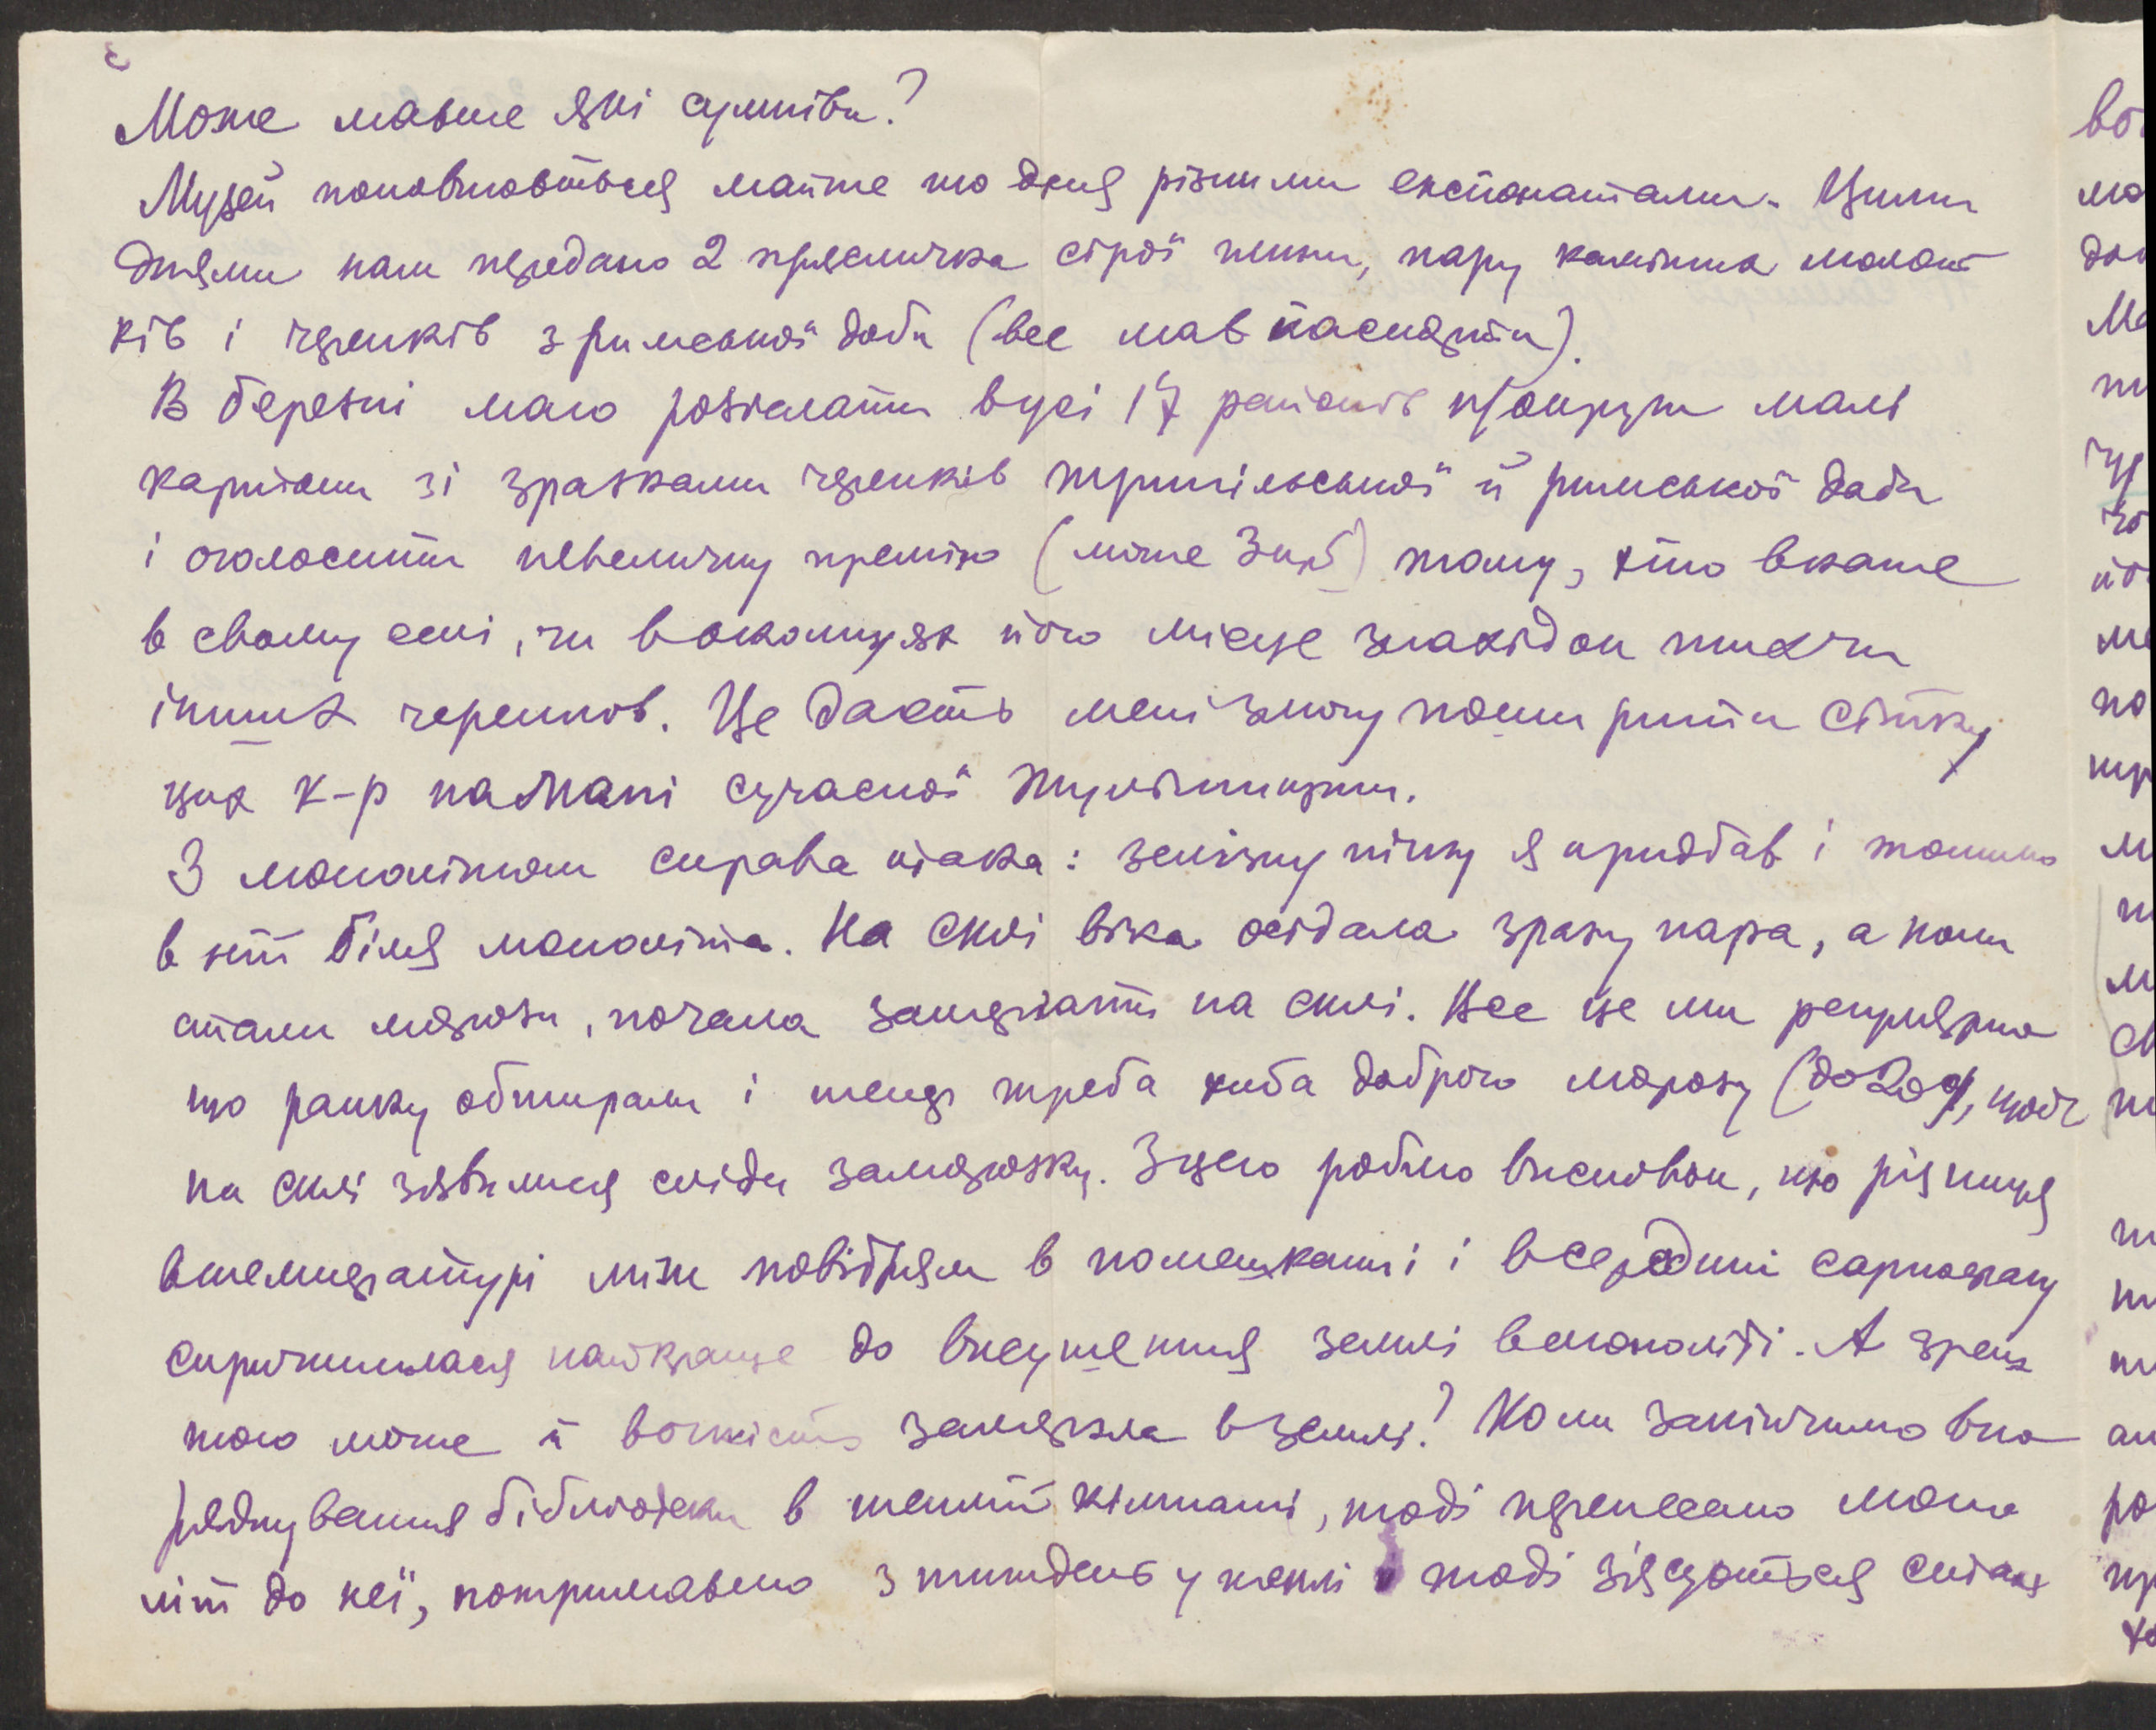 Може маєте які сумніви?
Музей поповнюється майже що дня різними експонатами. Цими
днями нам передано 2 прясличка сірої глини, пару камінних молот
ків і черепків з римської доби (все мав
В березні маю розіслати в усі 17 районів н/округи малі
картони зі зразками черепків трипільської й римської доби
і оголосити невеличку премію (може 3 крб) тому, хто вкаже
в свому селі, чи в околицях його місце знахідок тих чи
інших черепків. Це дасть мені змогу поширити сітку
цих к-р на мапі сучасної Тульчинщини.
З монолітом справа така: залізну пічку я придбав і топимо
в ній біля моноліта. На склі віка осідала зразу пара, а коли
стали морози, почала замерзати на склі. Все це ми регулярно
що ранку обтирали і тепер треба хиба доброго морозу (до 20°), щоби
на склі зявилися сліди заморозку. З цего робимо висновок, що різниця
в температурі між повітрям в помешканні і всередині саркофагу
спричинилася найкраще до висушення землі в моноліті. А зреш
тою може й вогкість замерзла в землі? Коли закінчимо впо
рядкування бібліотеки в теплій кімнаті, тоді перенесемо моно
літ до неї, потримаємо з тиждень у теплі і тоді зʼясується справа